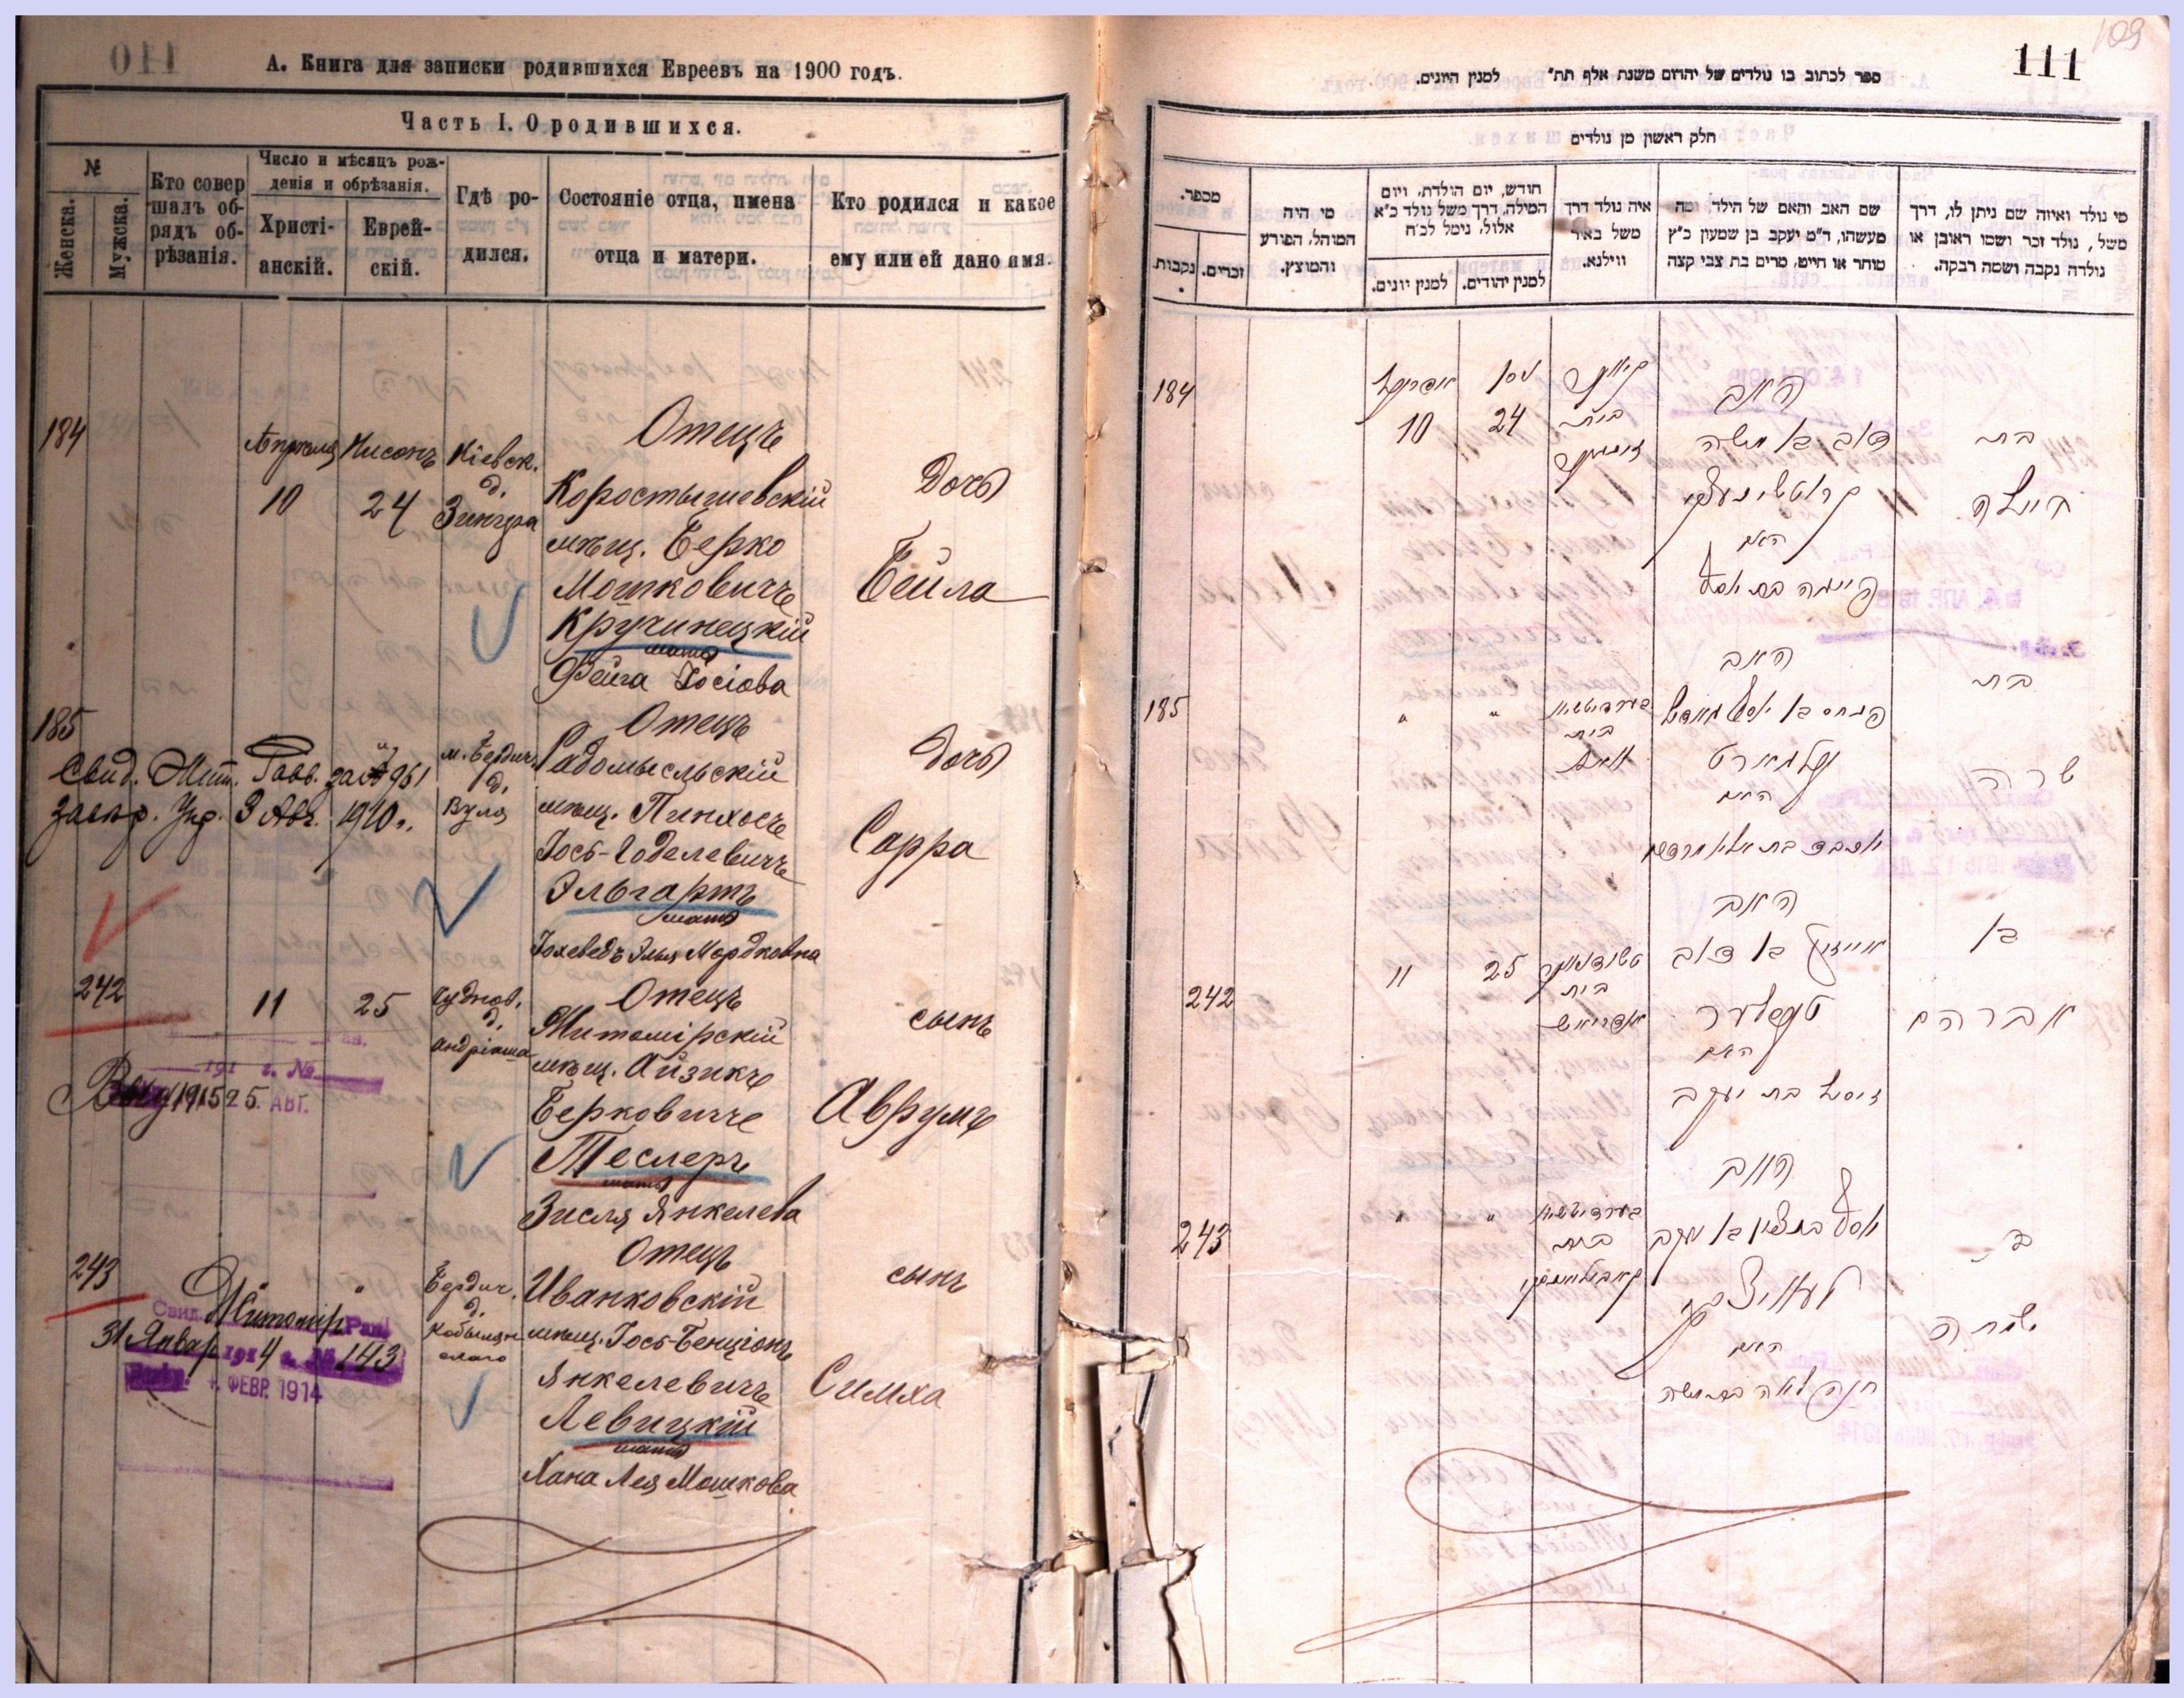 А. Книга для записки родившихся Евреевъ на 1900 годъ.
Часть I. О родившихся.
№
Женска.
Мужска.
Кто совер
шалъ об-
рядъ об-
рѣзанія.
Число и мѣсяцъ рож-
денія и обрѣзанія.
Христі-
анскій.
Еврей-
скій.
Гдѣ ро-
дился.
Состояніе отца, имена
отца и матери.
Кто родился и какое
ему или ей дано имя.
184
Апрѣля
10
Нисонъ
24
Кіевск.
д.
Зингера
Отецъ
Коростышевскій
мѣщ. Берко
Мошковичъ
Кручинецкій
мать
Фейга Іосіова
Дочь
Бейла
185
Свид. Жит. Равв. за № 951
засвр. Упр. 3 Авг. 1910 г.
м. Бердич.
д.
Вуля
Отецъ
Радомысльскій
мѣщ. Пинхосъ
Іось-Годелевичъ
Эльгартъ
мать
Іохеведъ Элья Мордковна
Дочь
Сарра
242
11
25
Чуднов.
д.
Андріаша
Отецъ
Житомірскій
мѣщ. Айзикъ
Берковичъ
Теслеръ
мать
Зисля Янкелева
сынъ
Аврумъ
Рав.
191 г. №
1915 25 АВГ.
243
"
"
Бердич.
д.
Кобылян
скаго
Отецъ
Иванковскій
мѣщ. Іось-Бенціонъ
Янкелевичъ
Левицкій
мать
Хана Лея Мошкова
сынъ
Симха
Свид. Житомір Рав.
31 Январ 1914 г. № 143
4. ФЕВР. 1914
109
111
ספר לכתוב בו נולדים של יהודים משנת אלף תת״ למנין היונים.
חלק ראשון מן נולדים
מספר.
נקבות.
זכרים.
מי היה
המוהל, הפורע
והמוצץ.
חודש, יום הולדת, ויום
המילה, דרך משל נולד כ״א
אלול, נימל לכ״ח
למנין יונים.
למנין יהודים.
איה נולד דרך
משל באיר
ווילנא.
שם האב והאם של הילד, ומה
מעשהו, ד״מ יעקב בן שמעון כ״ץ
סוחר או חייט, מרים בת צבי קצה
מי נולד ואיזה שם ניתן לו, דרך
משל, נולד זכר ושמו ראובן או
נולדה נקבה ושמה רבקה.
184
10
ניסן
24
בית
האב
דוב בן משה
האם
בת
ביילה
185
"
"
בית
האב
האם
בת
שרה
242
11
25
בית
האב
אייזיק בן דוב
טעסלער
האם
זיסל בת יעקב
בן
אברהם
243
"
"
בית
האב
האם
חנה לאה בת משה
בן
שמחה